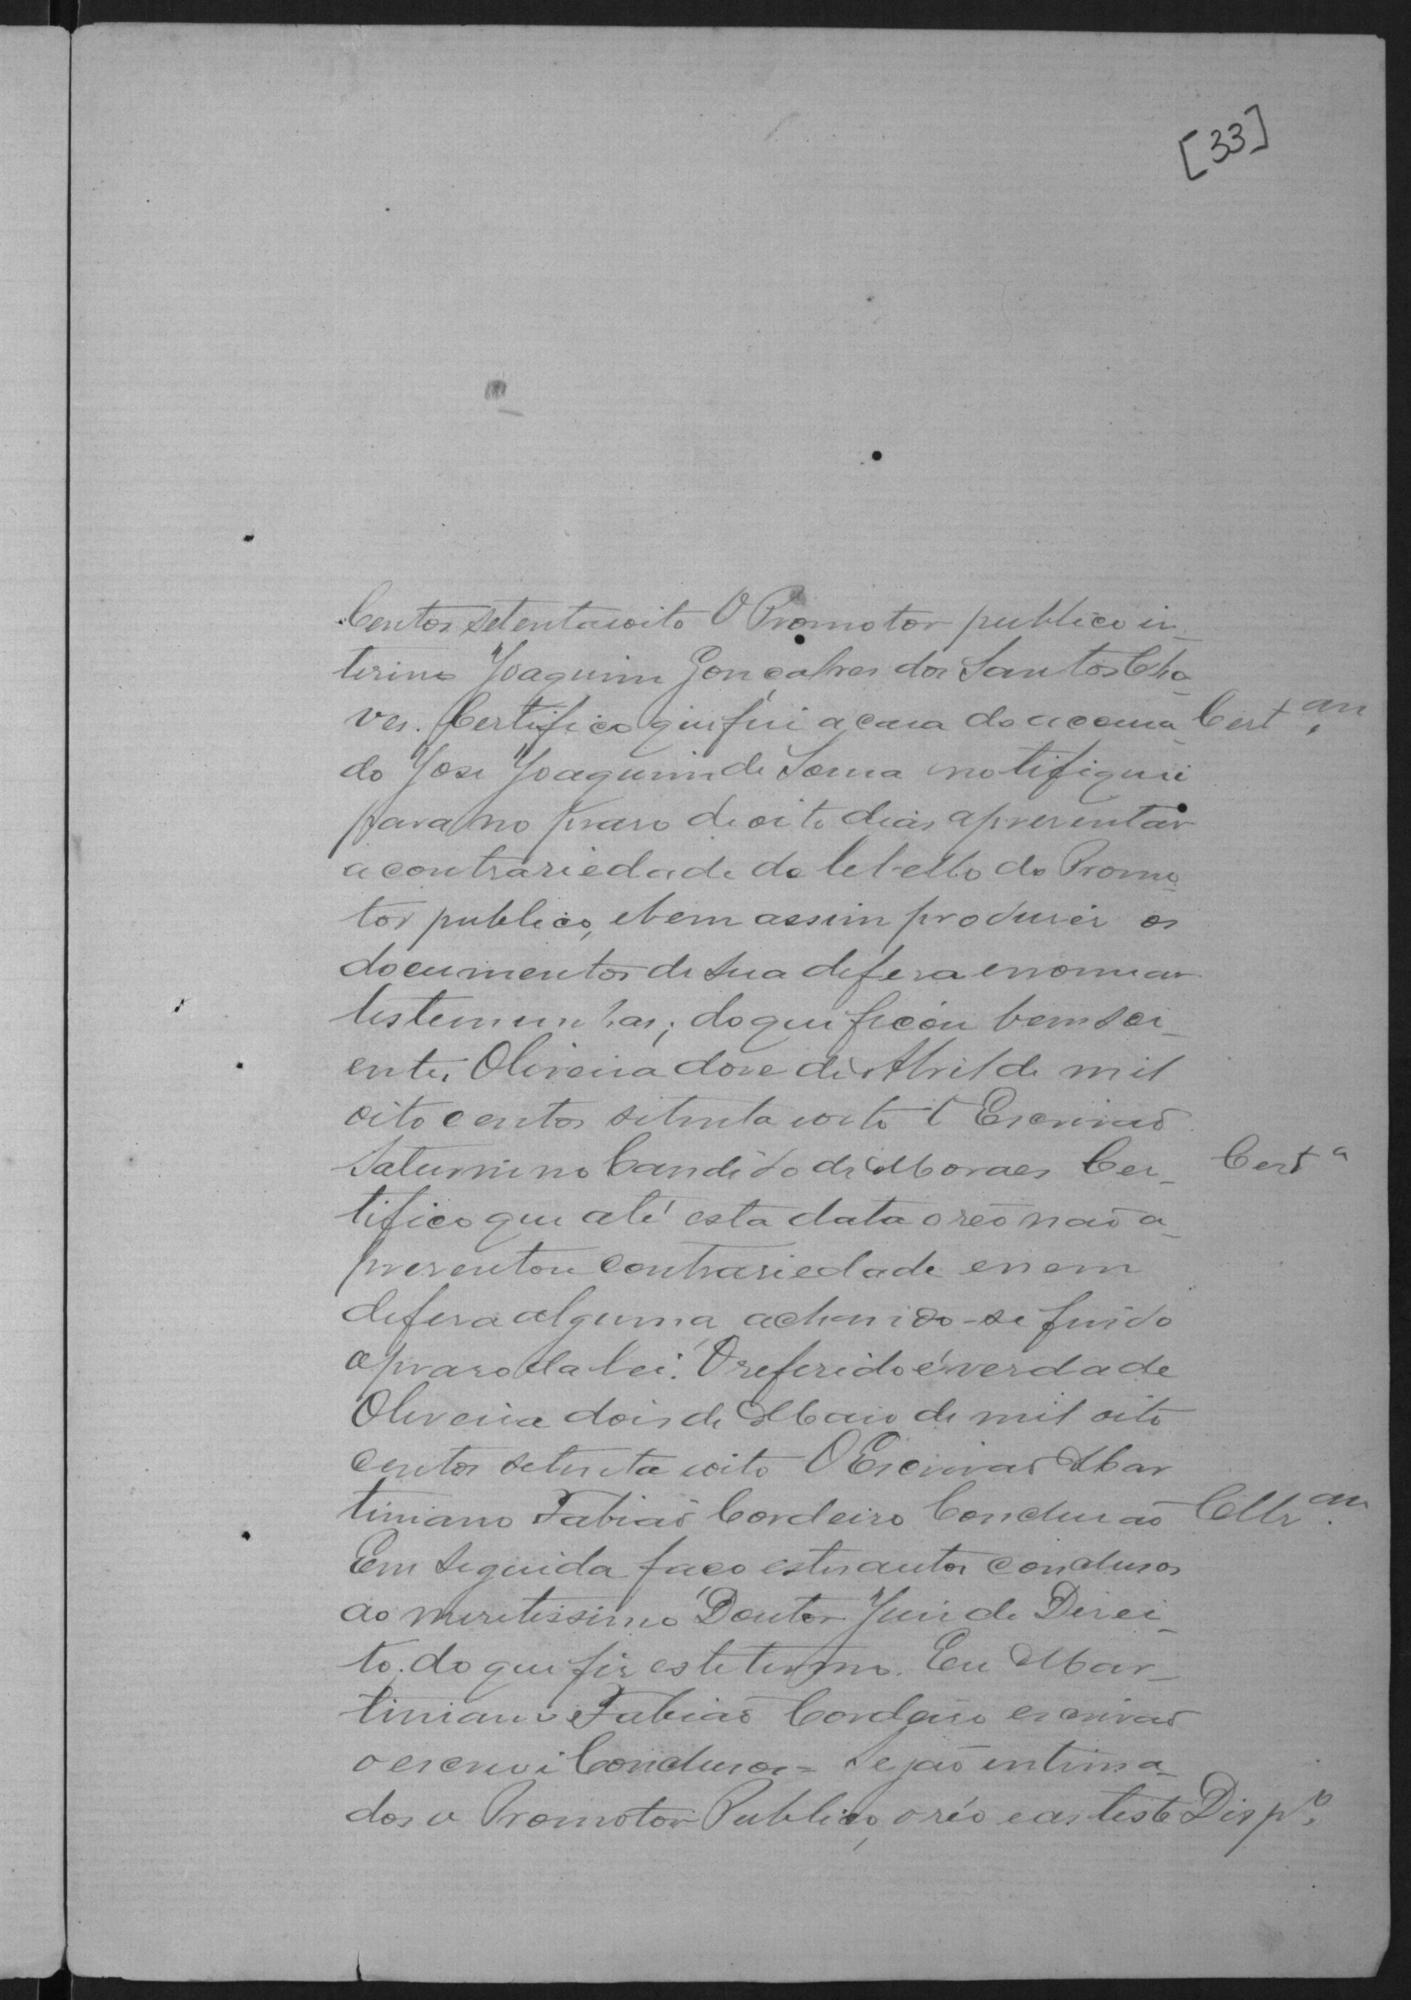 [33]
Centos setenta ioito O Promotor publico in_
terino Joaquim Gonçalves dos Santos Cha_
ves. Certifico que fui a casa do accusa_ Cert.am
do José Joaquim de Sousa notifiquei
para no praso de oito dias apresentar
a contrariedade do libello do Promo_
tor publico, e bem assim produsir os
documentos de sua defesa e nomear
testemunhas; do que ficou bem sci_
ente. Oliveira dose de Abril de mil
oito centos setenta ioito O Escrivão
Saturnino Candido de Moraes Cer_ Certa
tifico que até esta data o reo não a_
presentou contrariedade e nem
defesa alguma, achando-se findo
o praso da lei. O referido é verdade
Oliveira dois de Maio de mil oito
centos setenta ioito O Escrivão Mar
tiniano Fabião Cordeiro Conclusão
Em seguida faço estes autos conclusos
ao meretissimo Doutor Juis de Direi_
to. do que fis este termo. Eu Mar_
tiniano Fabião Cordeiro escrivão
o escrevi Conclusos = Sejão intima_
dos o Promotor Publico, o réo e as teste Disp.o